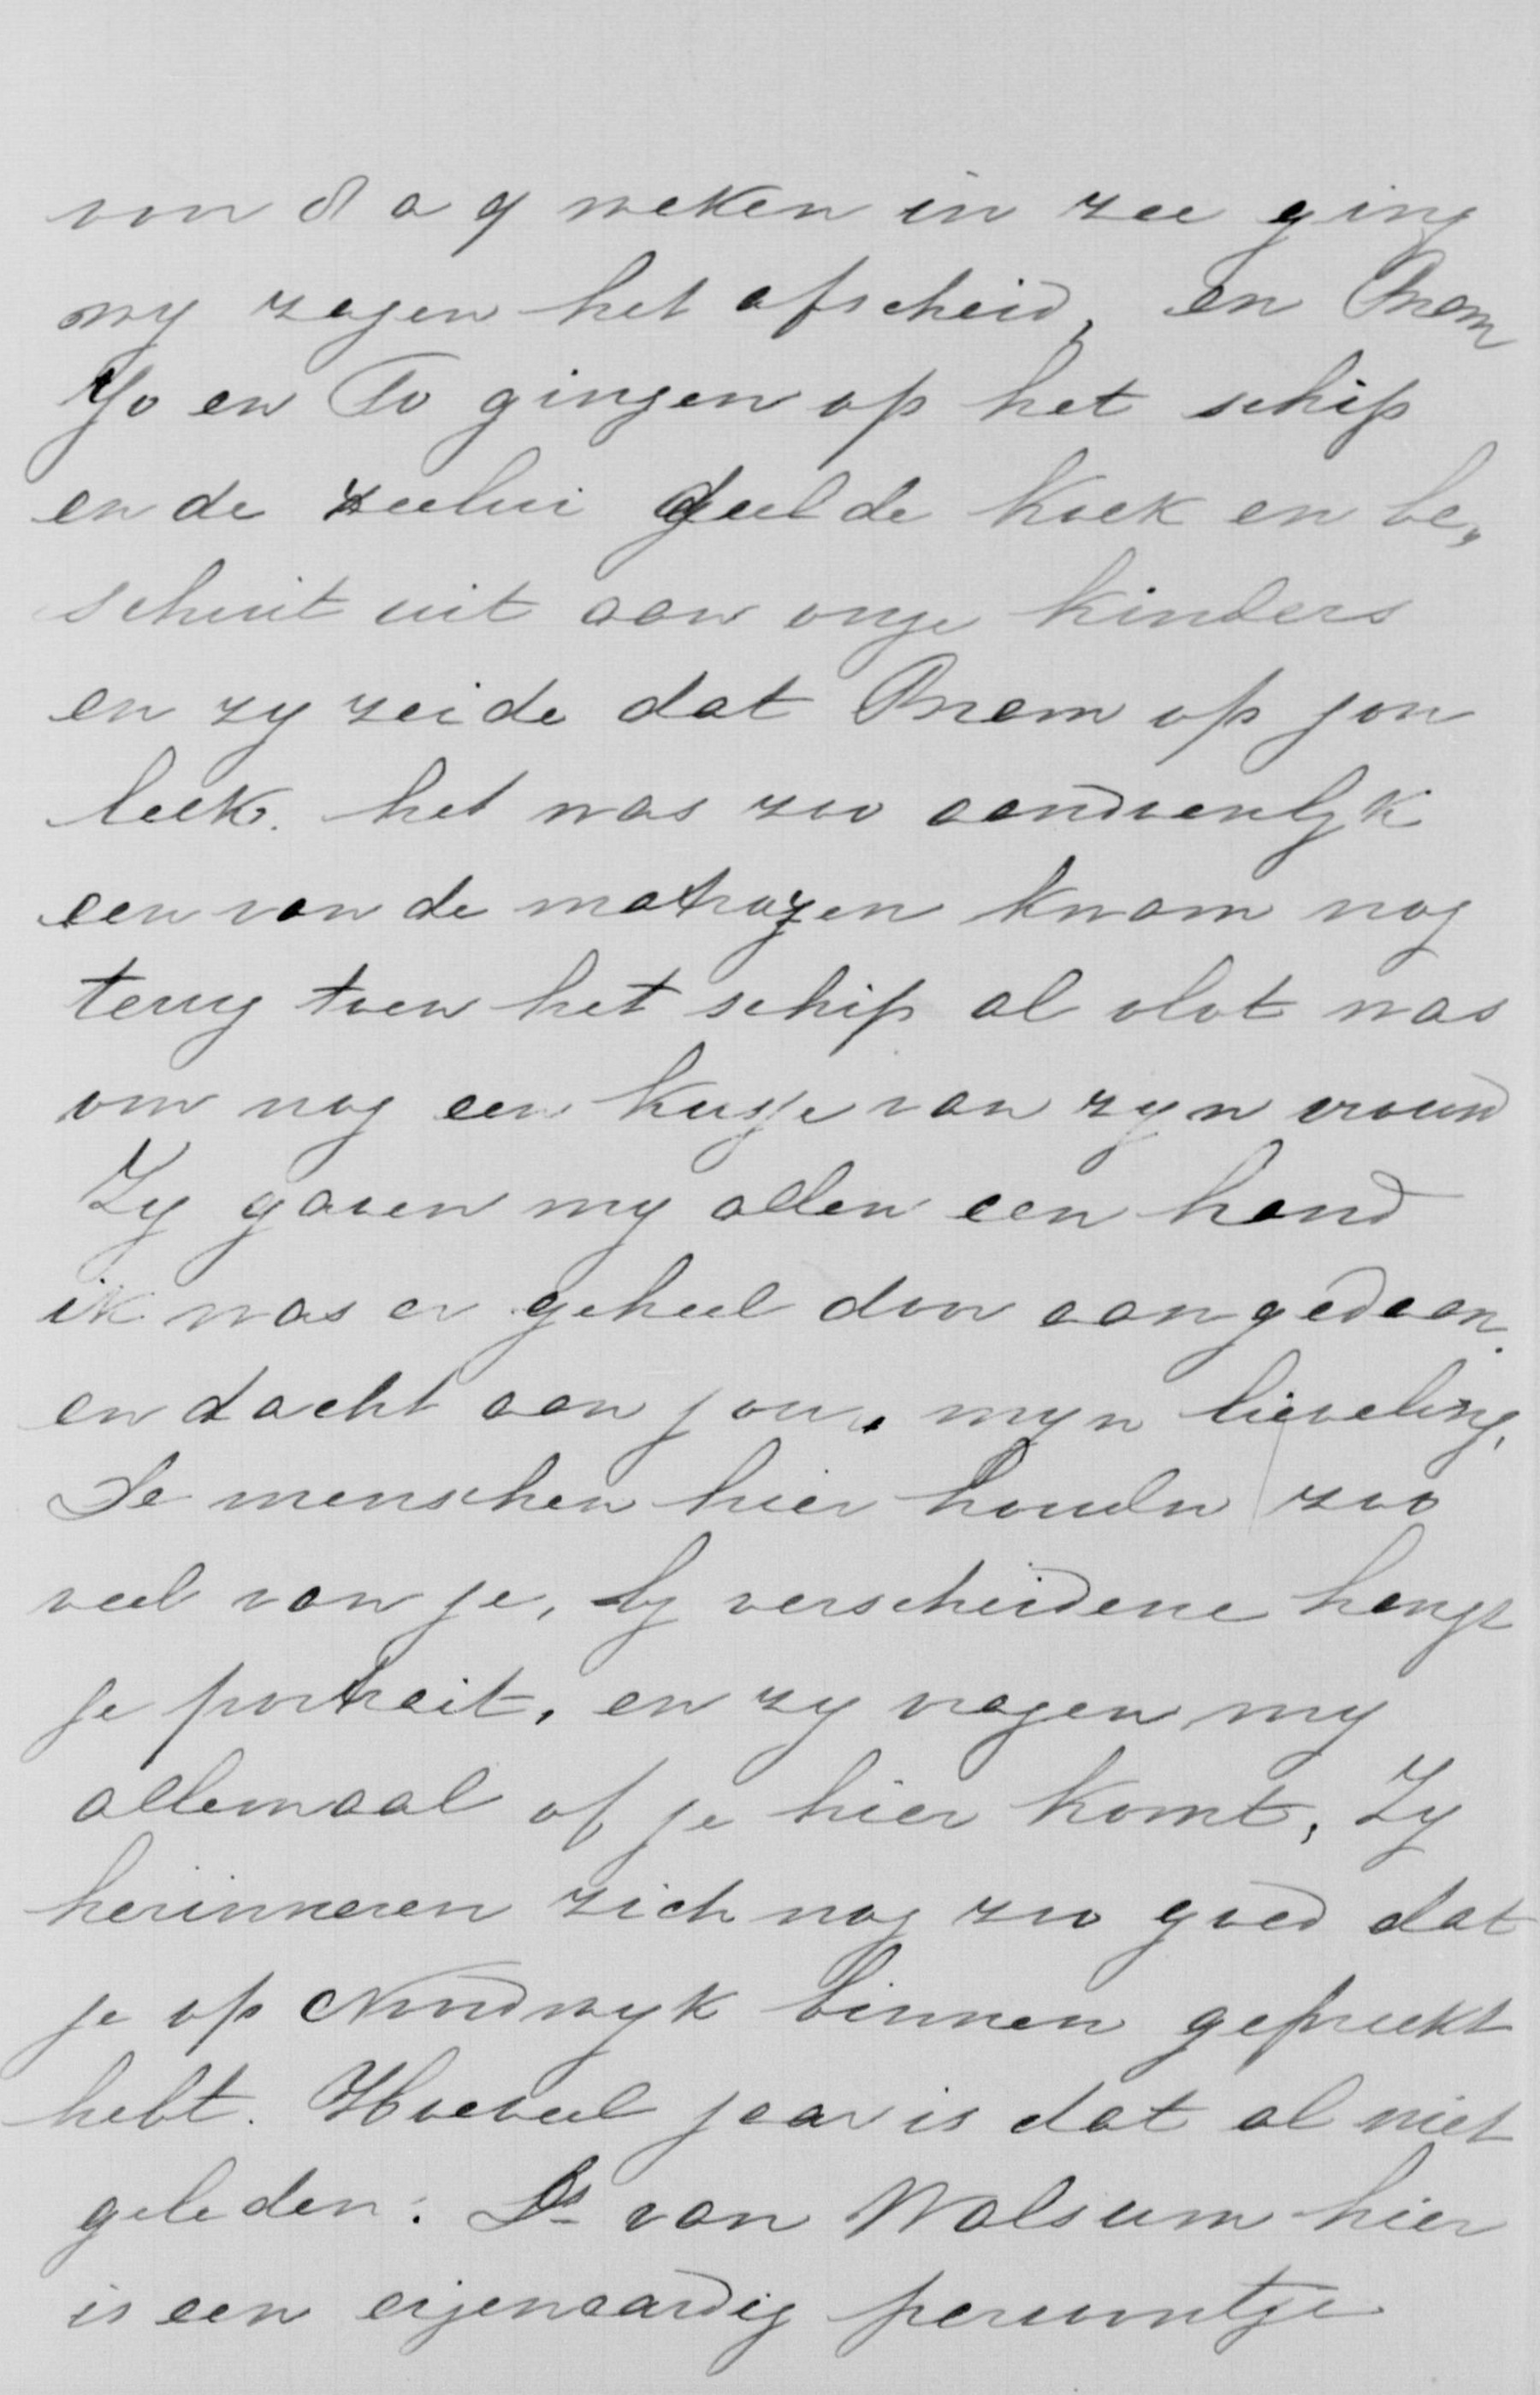 voor 8 a 9 weken in zee ging
wy zagen het afscheid, en Bram
Jo en To gingen op het schip
en de zeelui deelde koek en be„
schuit uit aan onze kinders
en zy zeide dat Bram op jou
leek. het was zoo aandoenlyk
een van de matrozen kwam nog
terug toen het schip al vlot was
om nog een kusje van zyn vrouw
Zy gaven my allen een hand
ik was er geheel door aangedaan.
en dacht aan jou. myn lieveling,
De menschen hier houden zoo
veel van je, by verscheidene hangt
je portrait, en zy vragen my
allemaal of je hier komt, Zy
herinneren zich nog zoo goed dat
je op Noordwyk binnen gepreekt
hebt. Hoeveel jaar is dat al niet
geleden. Ds van Walsum hier
is een eigenaardig persoontje